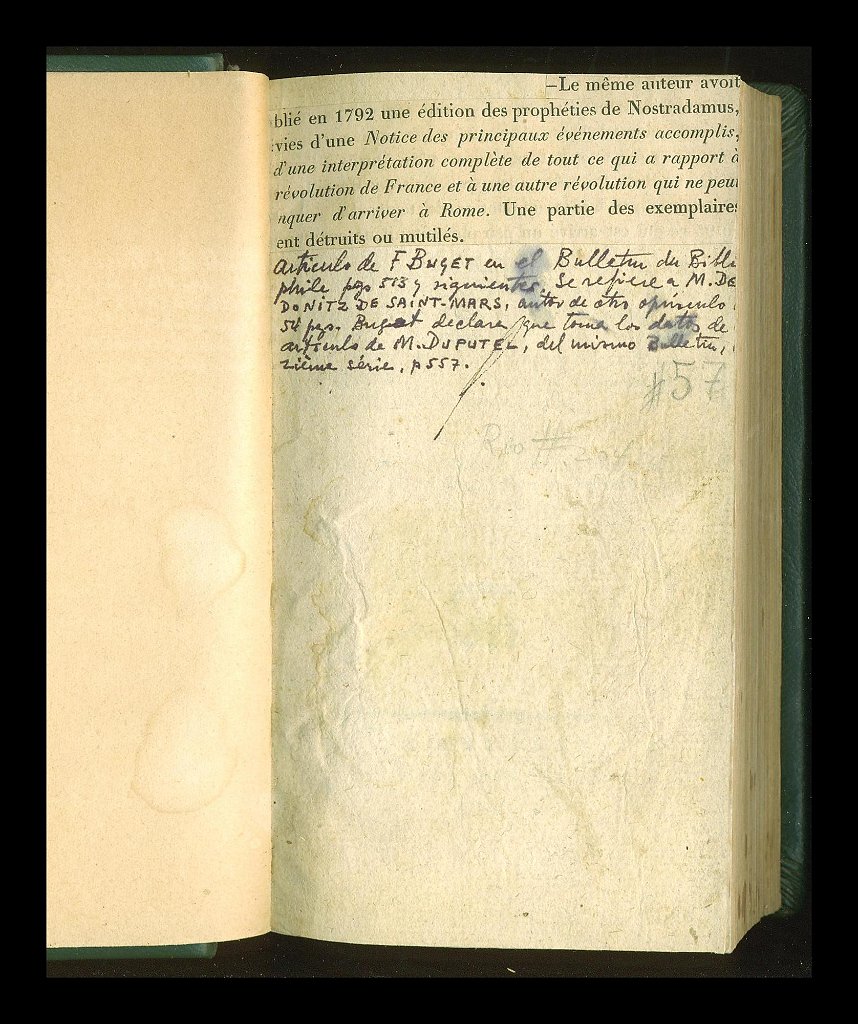 —Le même auteur avoit
blié en 1792 une édition des prophéties de Nostradamus,
vies d'une Notice des principaux événements accomplis,
d'une interprétation complète de tout ce qui a rapport à
révolution de France et à une autre révolution qui ne peut
nquer d'arriver à Rome. Une partie des exemplaires
ent détruits ou mutilés.
artículo de F BUGET en el Bulletin du Biblio
phile pgs 513 y siguientes. Se refiere a M. DE
DONITZ DE SAINT-MARS, autor de otro opúsculo
54 pgs. Buget declara que toma los datos de
artículo de M. DUPUTEL, del mismo Bulletin,
zième série, p 557.
#57